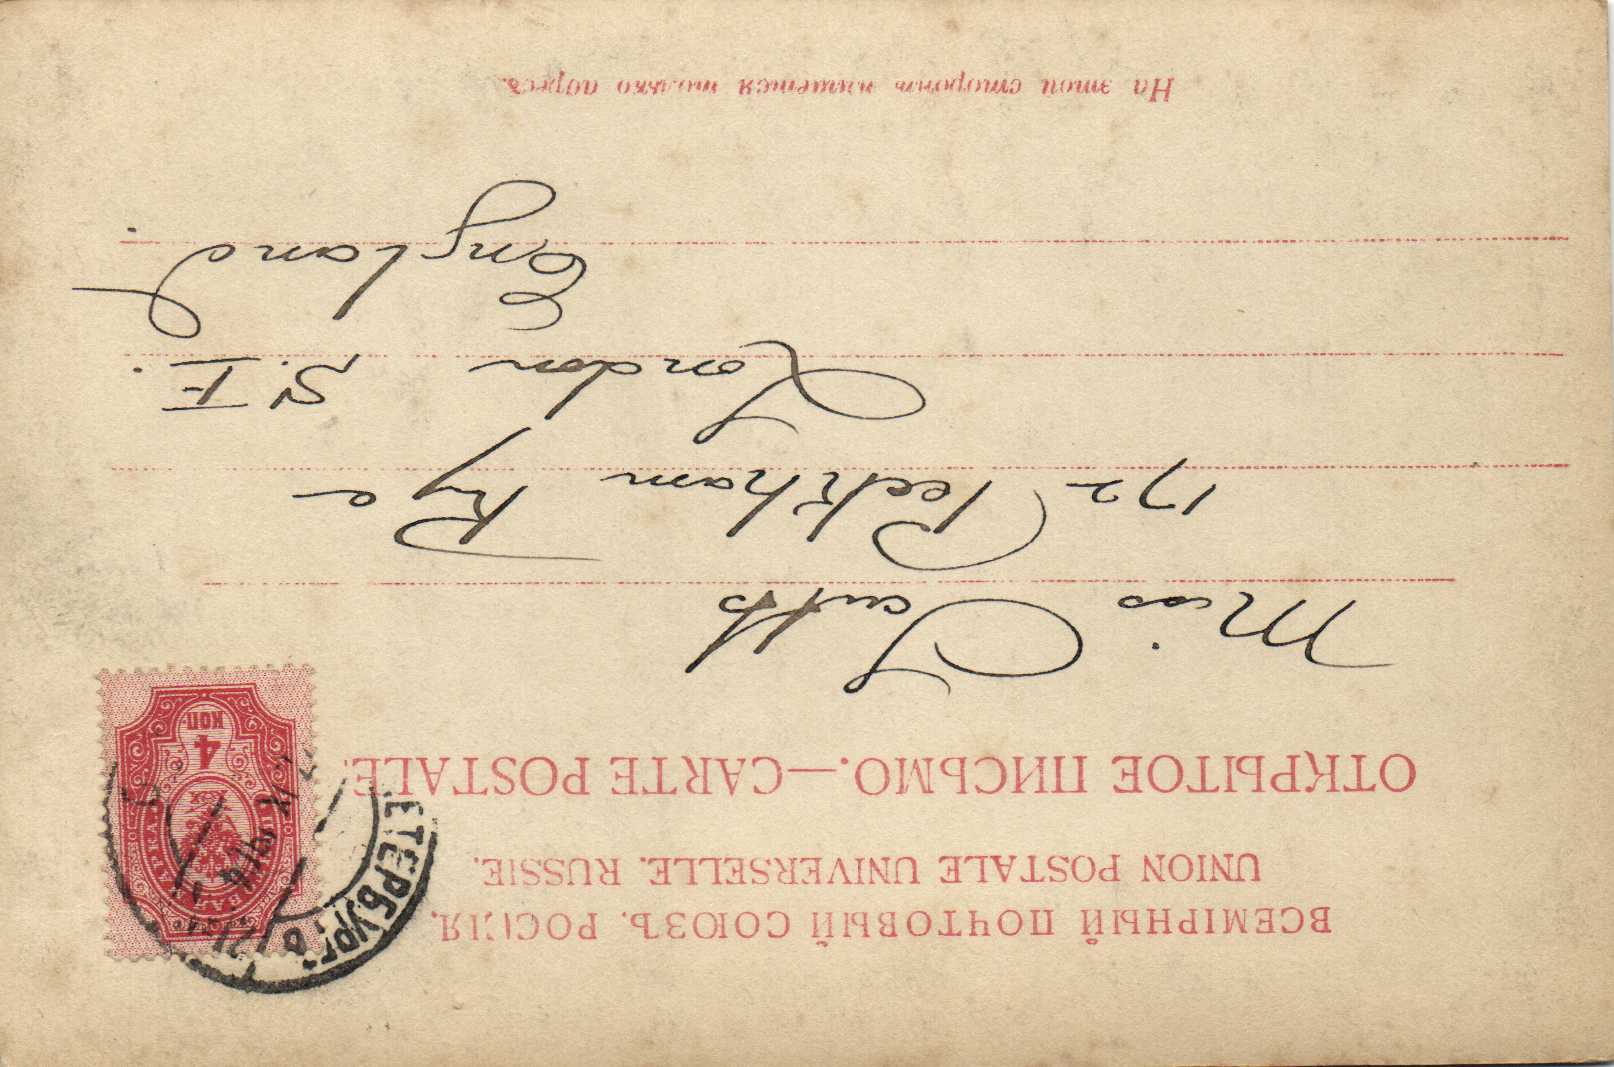 ВСЕМІРНЫЙ ПОЧТОВЫЙ СОЮЗЪ. РОССІЯ.
UNION POSTALE UNIVERSELLE. RUSSIE.
ОТКРЫТОЕ ПИСЬМО.—CARTE POSTALE.
4
КОП
ЕТЕРБУРГ
Miss
172 Peckham Rye
London S.E.
England
На этой сторонѣ пишется только адресъ.